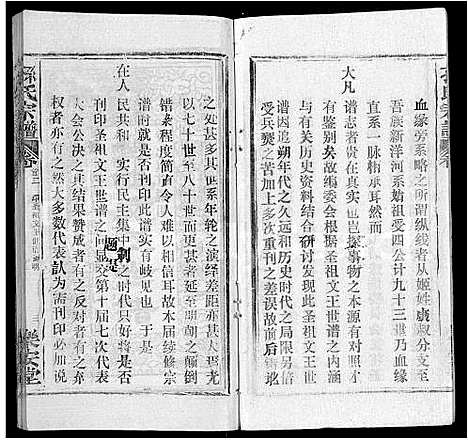 血缘旁系略之所谓纵线者从姬姓虞叔分支至
吾族新洋河系始祖受四公计九十三世乃血缘
系一脉精承其然而
大凡
谱志者贵在真实也贵在探事物之本源有对照才
有鉴别矣故编委会研究此圣祖文王世谱之内涵
与有关历史资料结合研讨发现不一
谱因追朔年代之久远和历史时代之局限另倍
受兵燹之苦加上多次重刊之差误故前后
之处甚多其世系年轮之演绎差距亦甚大
以七八十世至八十世而更甚者延至
世颠倒
错杂程度简直令人难以相信耳故本届续修宗
谱时此谱是否刊印实有歧见也 于是
在人民共和 实行民主集中制之时代只好将是否
刊印圣祖文王世谱之问题提交第十届七次代表
大会公决之结果赞成者有之反对者有之弃
权者亦有之然大多数代表认为需刊印必加说
孙氏宗谱
卷二
圣祖文王世谱说明
三
乐安堂